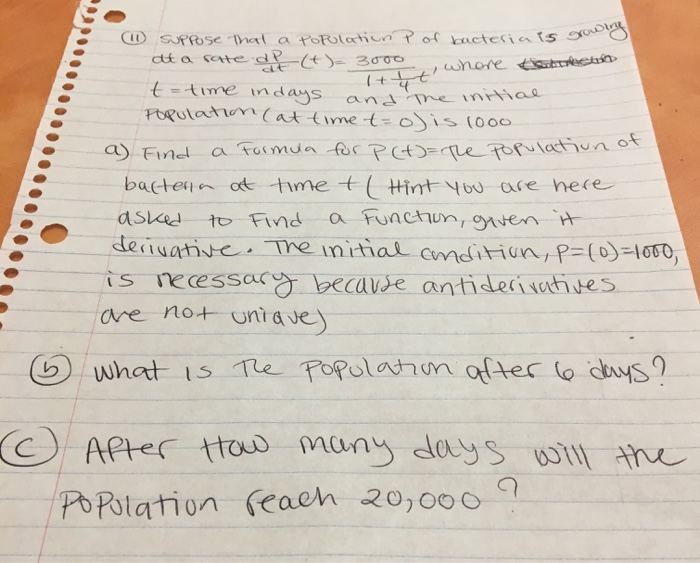 (11) Suppose that a population P of bacteria is growing
at a rate dP/dt (t) = 3000/(1+1/4t), where
t = time in days and the initial
Population (at time t=0) is 1000
a) Find a Formula for P(t) = The Population of
bacteria at time t (Hint you are here
asked to Find a Function, given it
derivative. The initial condition, P=(0)=1000,
is necessary because antiderivatives
are not unique)
(b) what is The Population after 6 days?
(C) After How many days will the
Population reach 20,000?